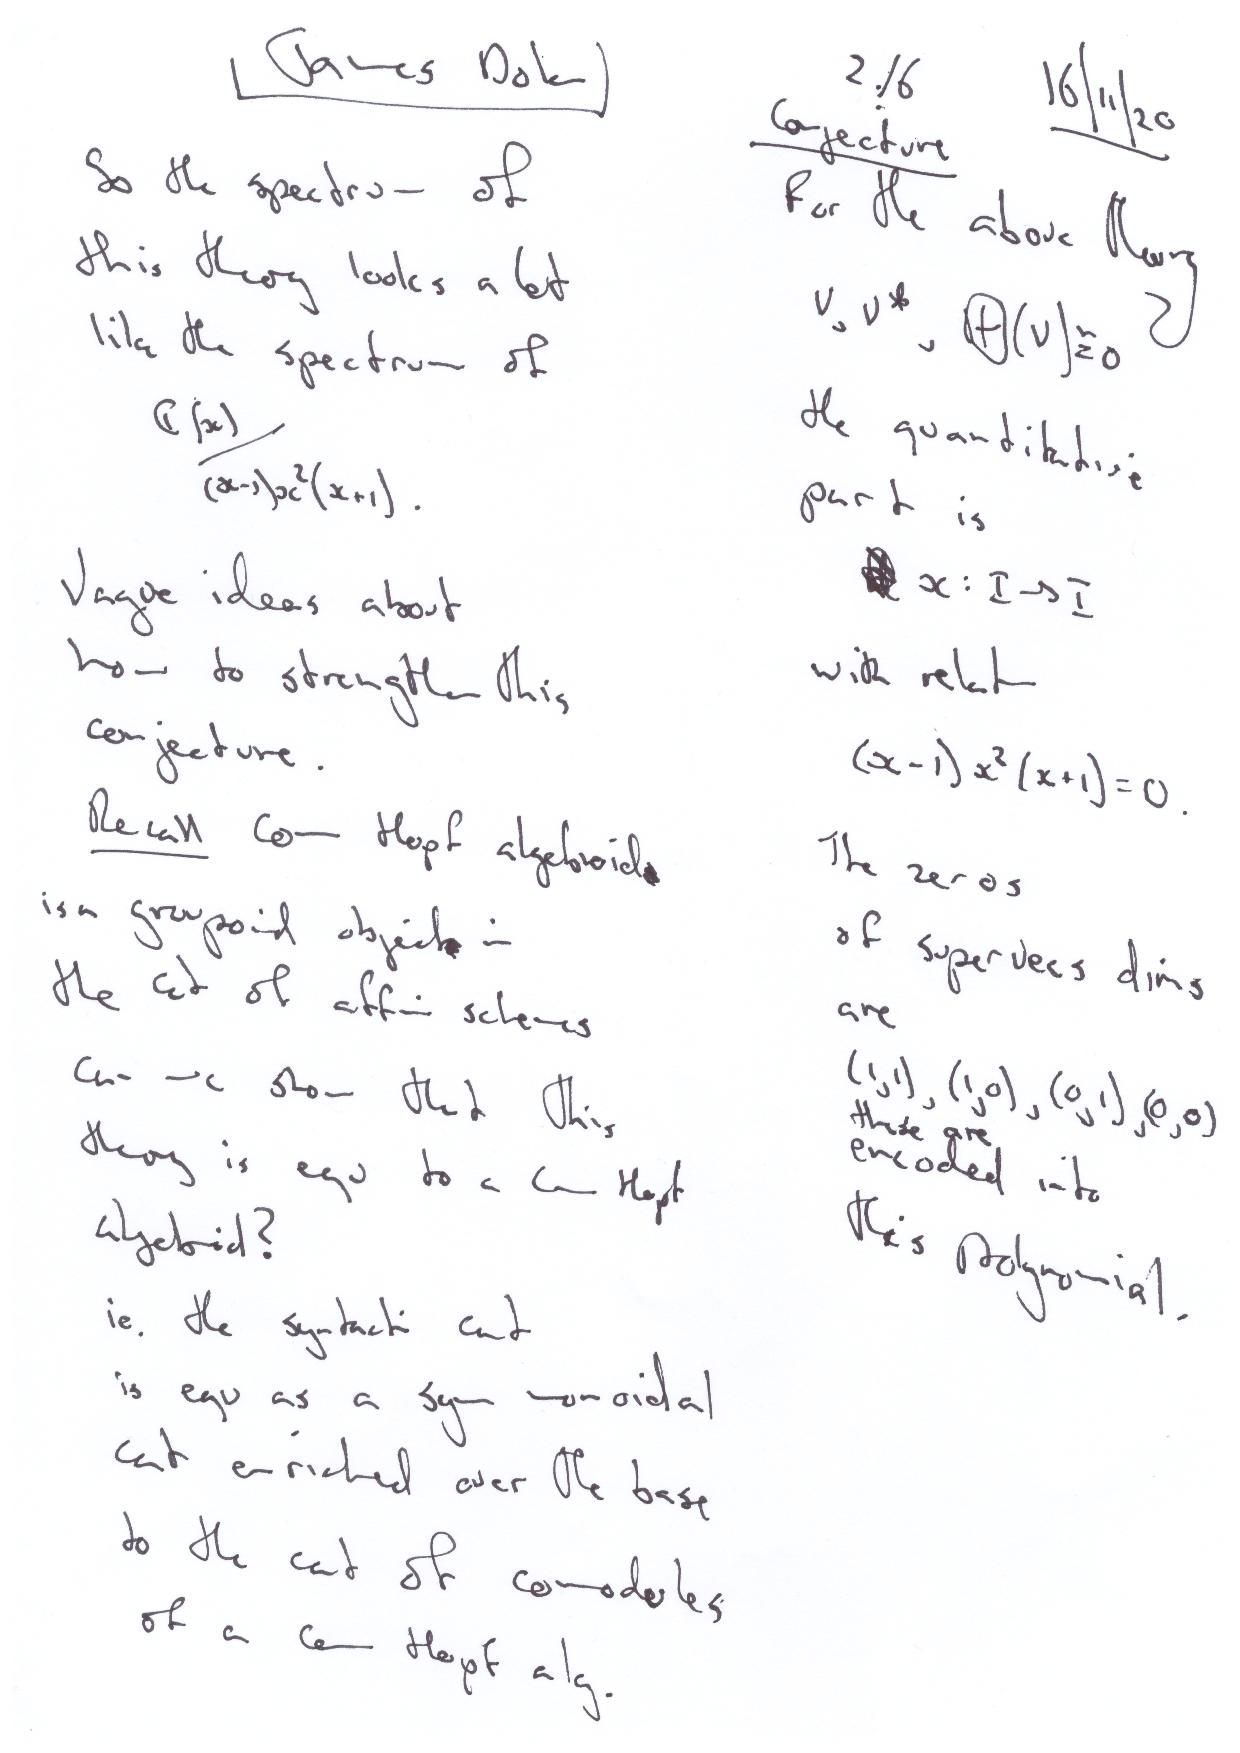 James Dolan
2/6
16/11/20
So the spectrum of
this theory looks a lot
like the spectrum of
ℂ[x]
(x-1)x²(x+1).
Vague ideas about
how to strengthen this
conjecture.
Recall com Hopf algebroid
is a groupoid object in
the cat of affine schemes
Can we show that this
theory is equ to a com Hopf
algebroid?
ie. the syntactic cat
is equ as a sym monoidal
cat enriched over the base
to the cat of comodules
of a com Hopf alg.
Conjecture
For the above theory
V, V*, (V) ≅ 0
the quantitative
part is
x : I → I
with relat
(x-1) x² (x+1) = 0.
The zeros
of supervecs dims
are
(1,1), (1,0), (0,1), (0,0)
these are
encoded into
this Polynomial.